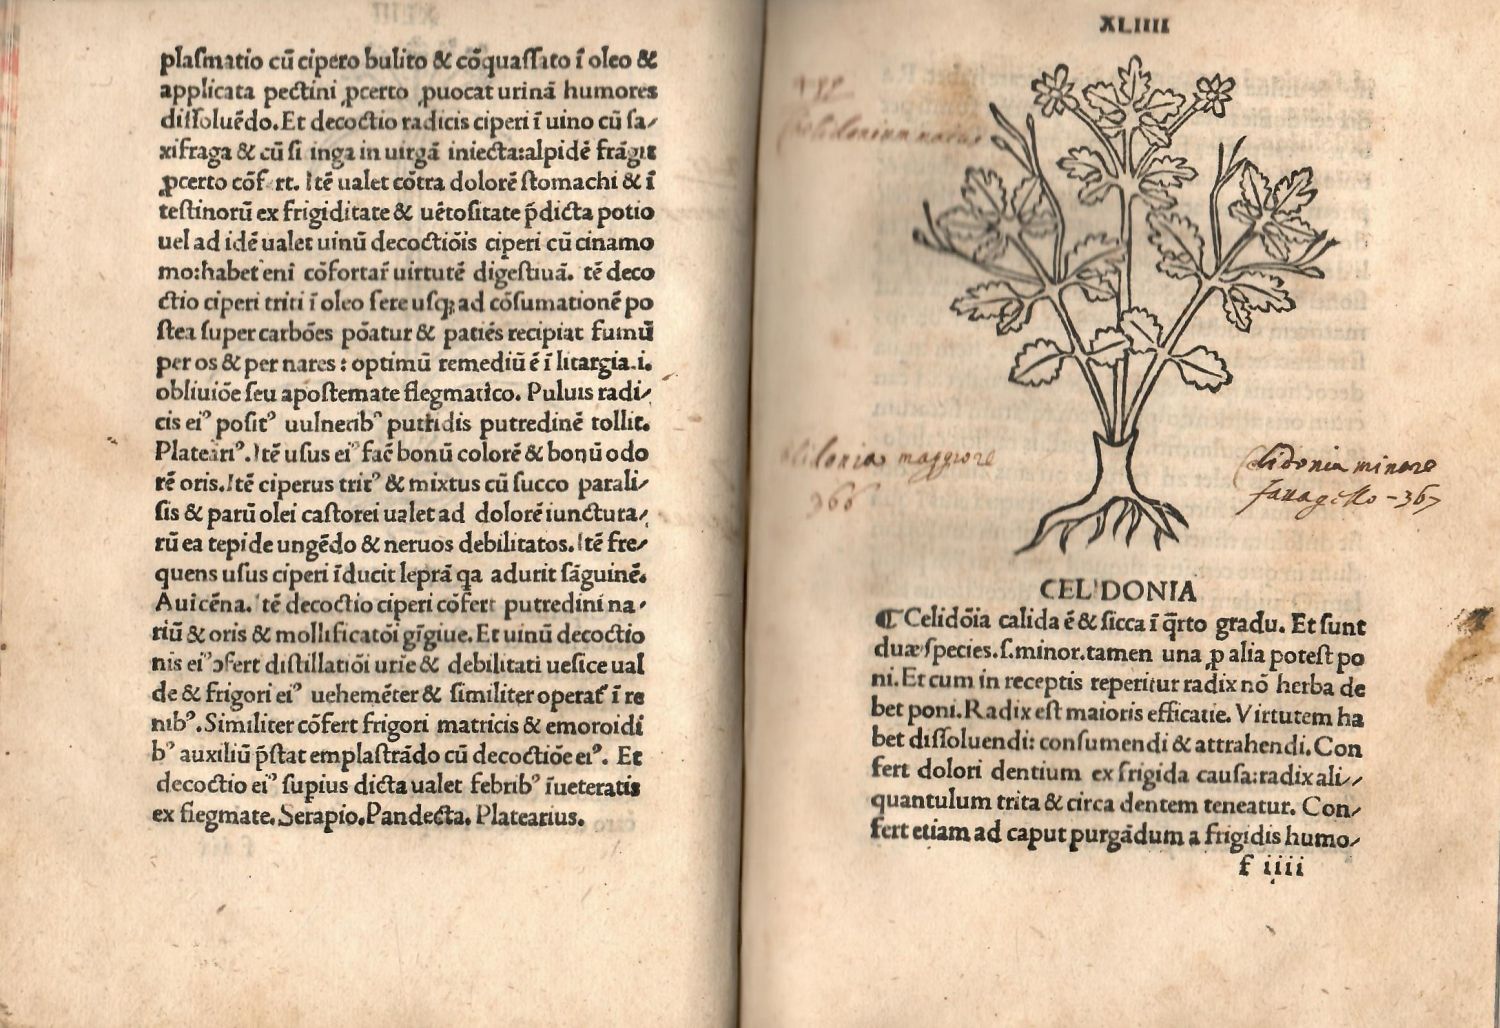 plasmatio cū cipero bulito & cōquassato ī oleo &
applicata pectini ꝓcerto ꝓuocat urinā humores
dissoluēdo. Et decoctio radicis ciperi ī uino cū sa/
xifraga & cū si inga in uirgā iniecta: alpidē frāgit
ꝓcerto cōf rt. Itē ualet cōtra dolorē stomachi & ī
testinorū ex frigiditate & uētositate p̄dicta potio
uel ad idē ualet uinū decoctiōis ciperi cū cinamo
mo: habet eni cōfortar̄ uirtutē digestiuā. tē deco
ctio ciperi triti ī oleo fere usq; ad cōsumationē po
stea super carbōes pōatur & patiēs recipiat fumū
per os & per nares: optimū remediū ē ī litargia .i.
obliuiōe seu apostemate flegmatico. Puluis radi/
cis eiꝰ positꝰ uulneribꝰ putridis putredinē tollit.
Plateariꝰ. Itē usus eiꝰ facē bonū colorē & bonū odo
rē oris. Itē ciperus tritꝰ & mixtus cū succo parali/
sis & parū olei castorei ualet ad dolorē iunctura/
rū ea tepide ungēdo & neruos debilitatos. Itē fre/
quens usus ciperi īducit leprā qa adurit sāguinē.
Auicēna. tē decoctio ciperi cōfert putredini na/
riū & oris & mollificatōi gīgiue. Et uinū decoctio
nis eiꝰ ↄfert distillatiōi urīe & debilitati uesice ual
de & frigori eiꝰ uehemēter & similiter operat̄ ī re
nibꝰ. Similiter cōfert frigori matricis & emoroidi
bꝰ auxiliū p̄stat emplastrādo cū decoctiōe eiꝰ. Et
decoctio eiꝰ supius dicta ualet febribꝰ īueteratis
ex flegmate. Serapio. Pandecta. Platearius.
XLIIII
elidonia maggiore
366
Celidonia minore
fauagello - 367
CEL'DONIA
¶ Celidōia calida ē & sicca ī q̄rto gradu. Et sunt
duæ species. s. minor. tamen una ꝓ alia potest po
ni. Et cum in receptis reperitur radix nō herba de
bet poni. Radix est maioris efficatie. Virtutem ha
bet dissoluendi: consumendi & attrahendi. Con
fert dolori dentium ex frigida causa: radix ali/
quantulum trita & circa dentem teneatur. Con/
fert etiam ad caput purgādum a frigidis humo/
f iiii